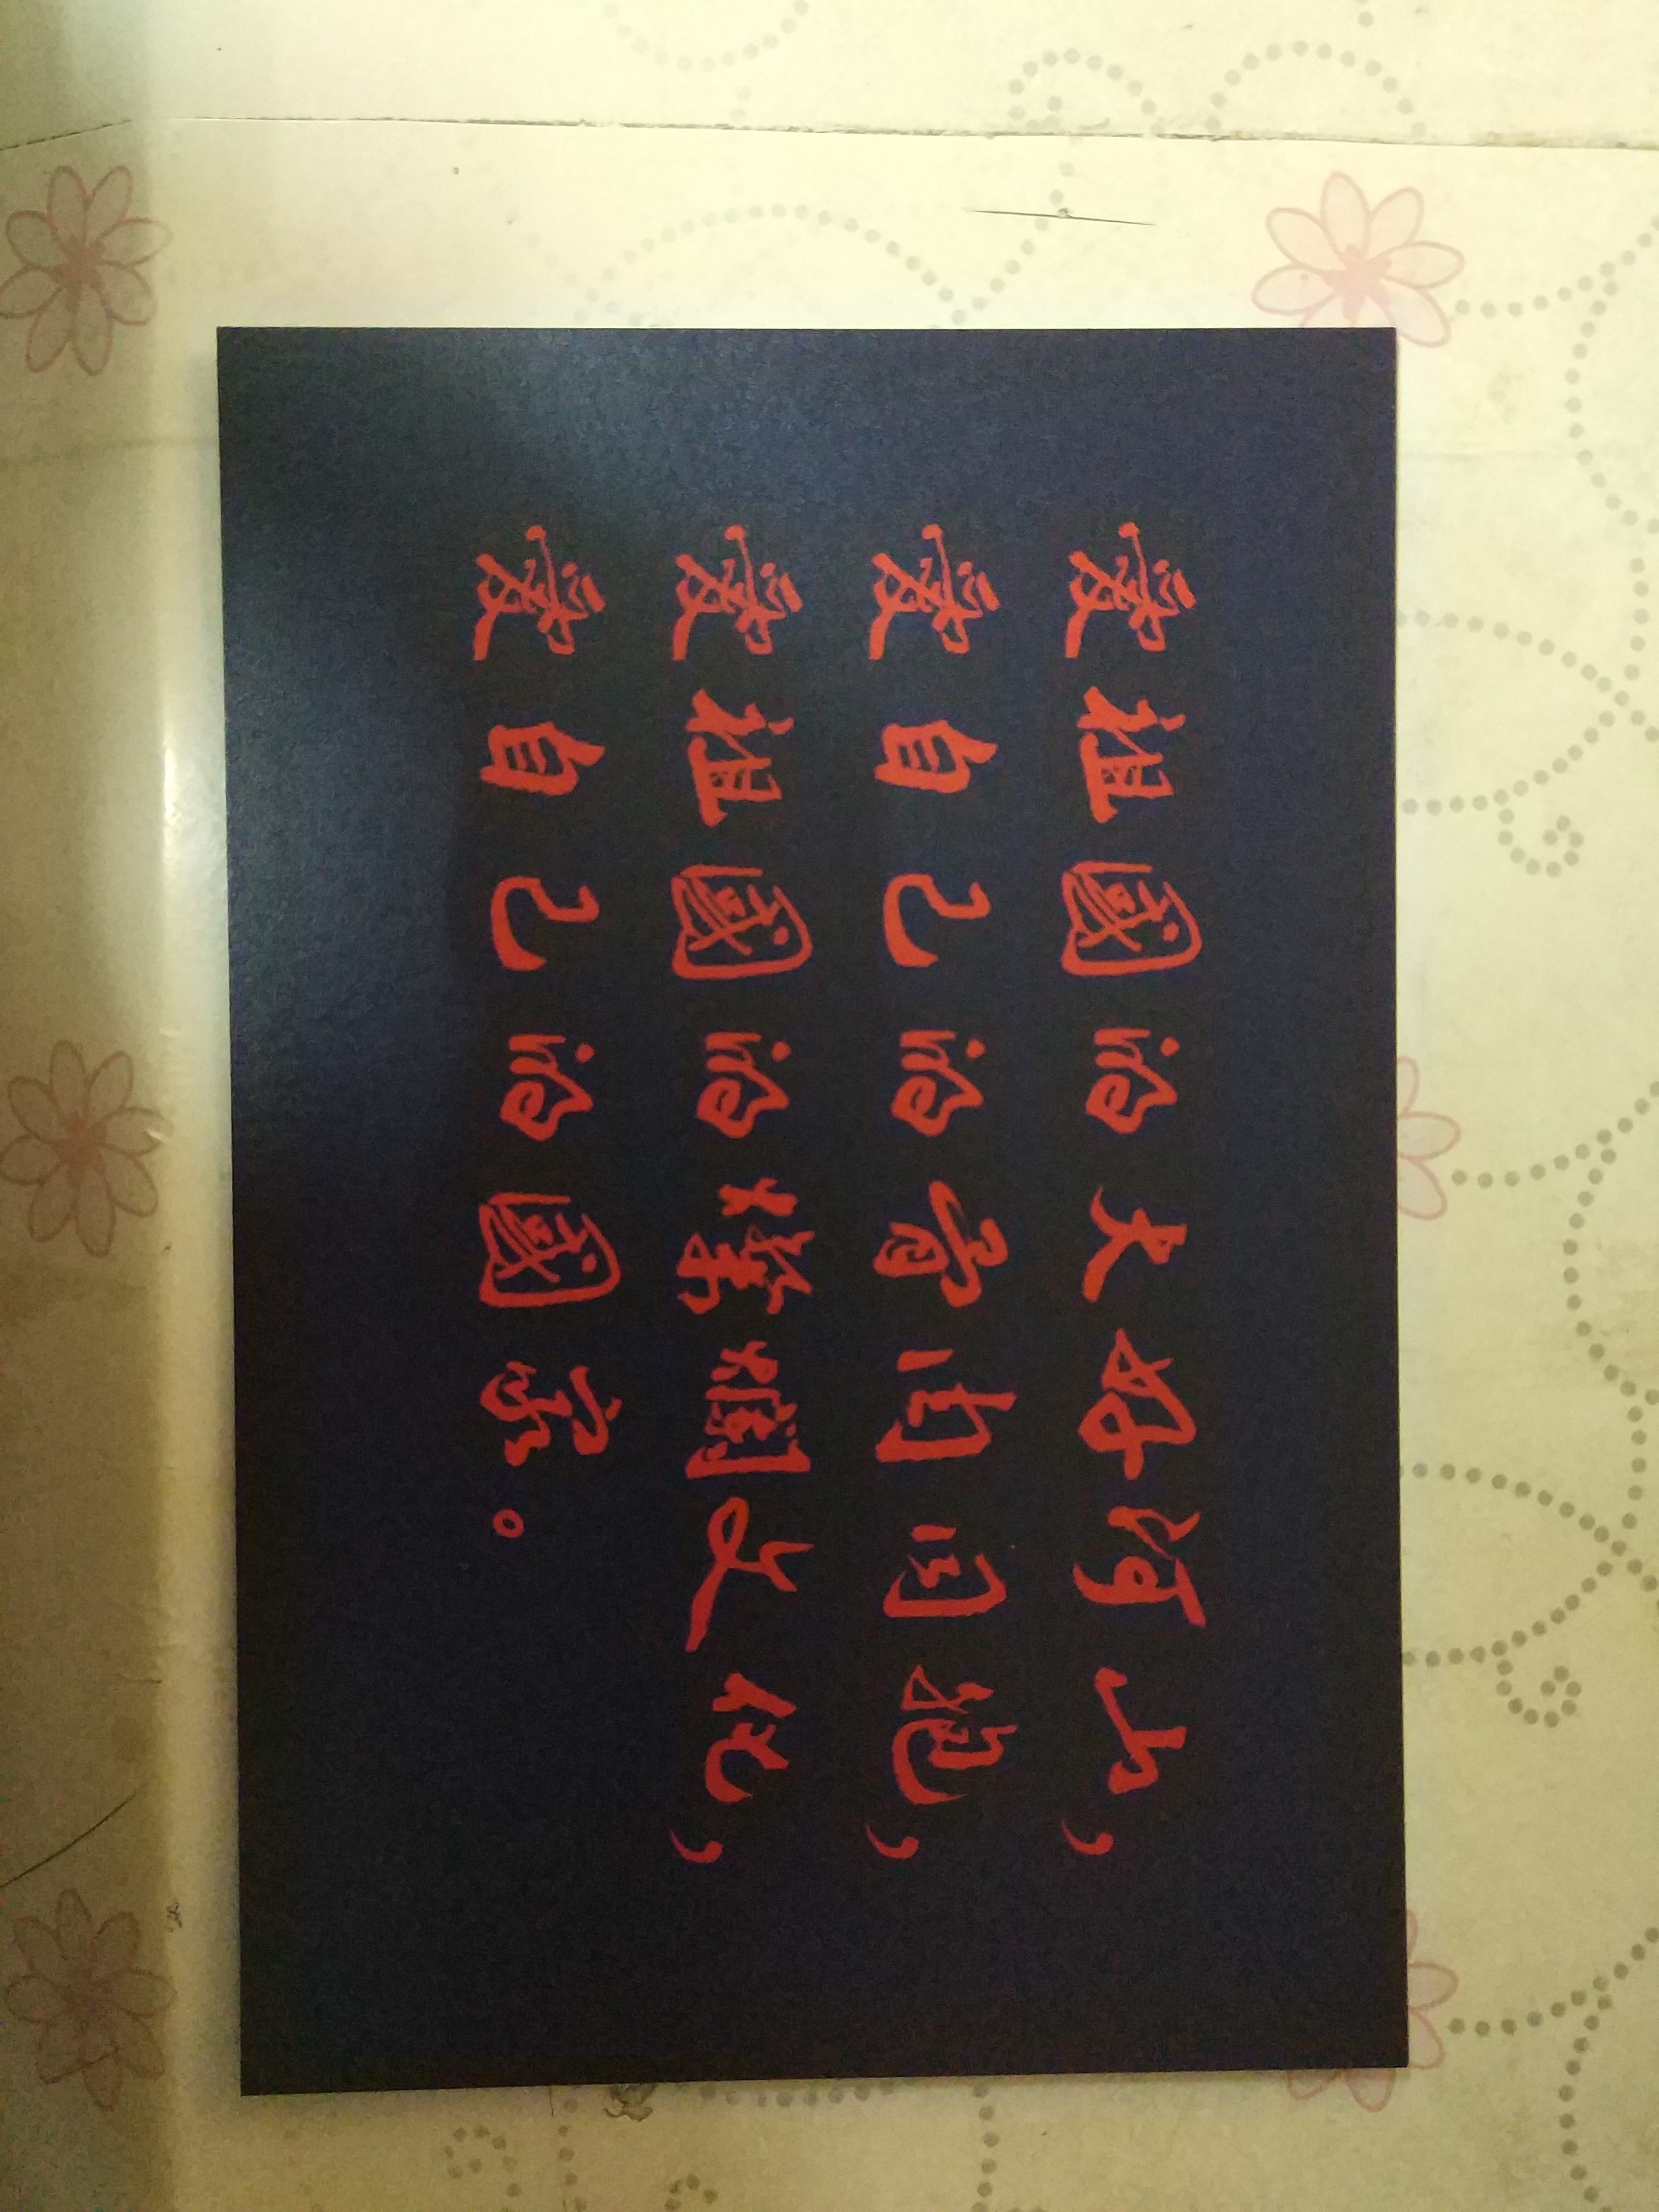 愛祖國的大好河山，
愛自己的骨肉同胞，
愛祖國的燦爛文化，
愛自己的國家。